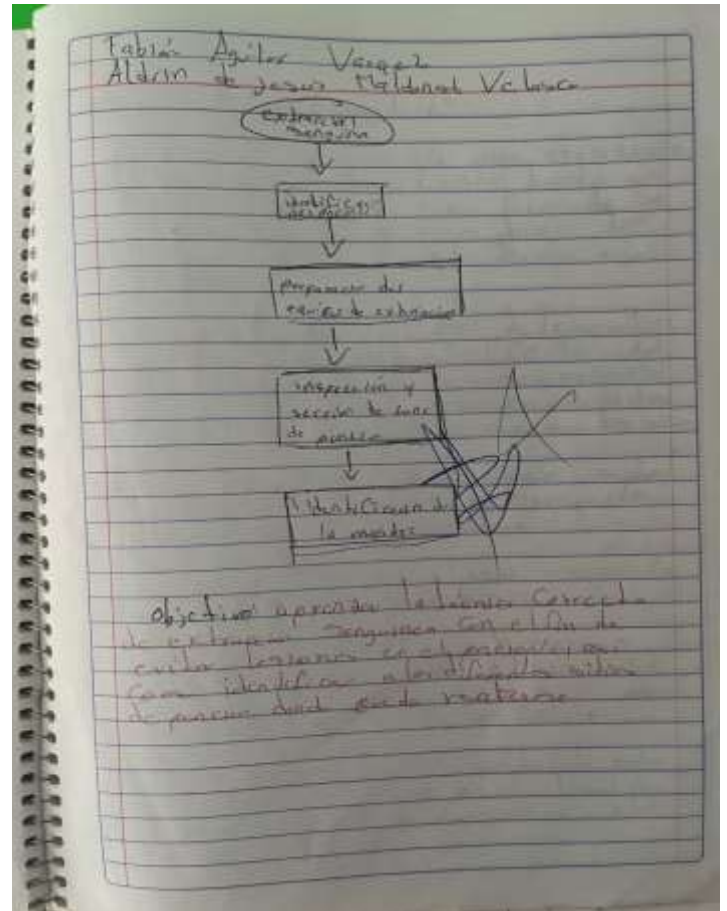 Fabián Aguilar Vasquez
Aldrin de Jesus Maldonad Velasco
extracción
sanguina
identificar
preparacion del
equipo de extraccion
inspección y
de zona
de
identificacion d
la muestra
objetivo aprender la técnica correcta
de extraccion sanguinea con el fin de
evitar lesiones en el
como identificar a los diferentes sitios
de puncion dond puede realizarse